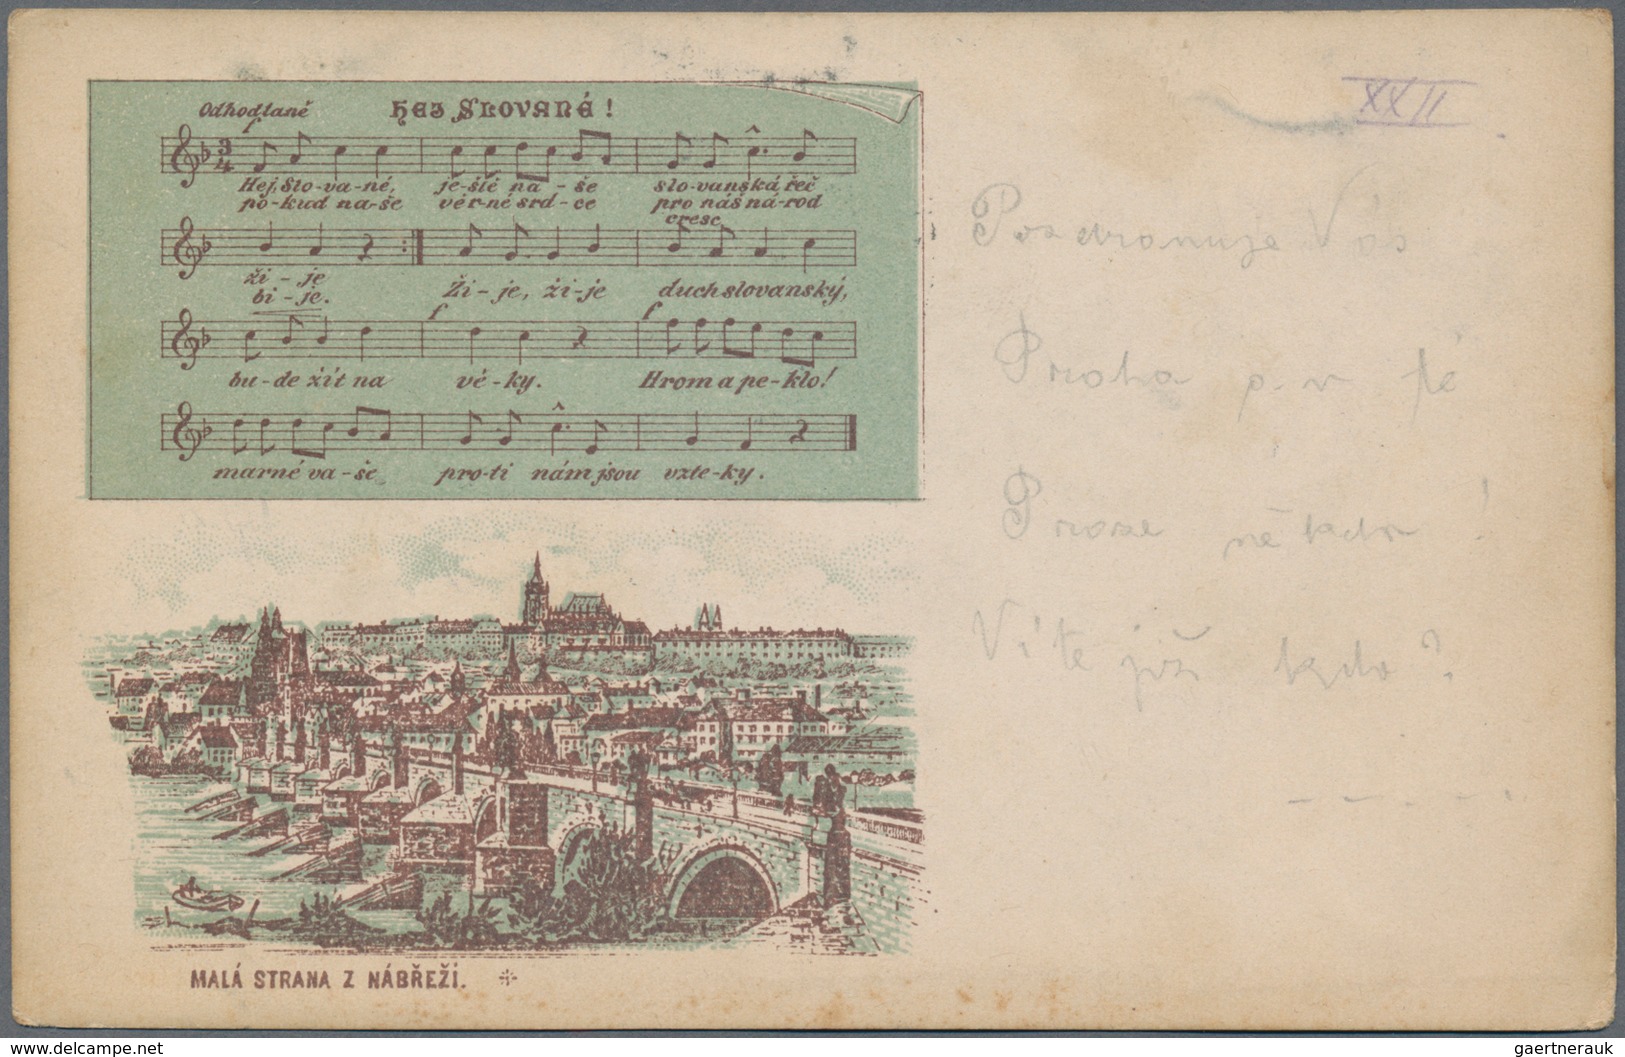 Odhodlaně
HEJ SLOVANÉ!
f
3
4
Hej, Slo-va-né, je-ště na-še slo-vanská řeč
po-kud na-še věr-né srd-ce pro náš ná-rod
cresc.
ži-je
bi-je. Ži-je, ži-je duch slovanský,
f f
bu-de žít na vě-ky. Hrom a pe-klo!
marné va-še pro-ti nám jsou vzte-ky.
MALÁ STRANA Z NÁBŘEŽÍ.
XXII
Pozdravuje Vás
Praha
Prosze někdo!
Víte již kdo?
www.delcampe.net
gaertnerauk